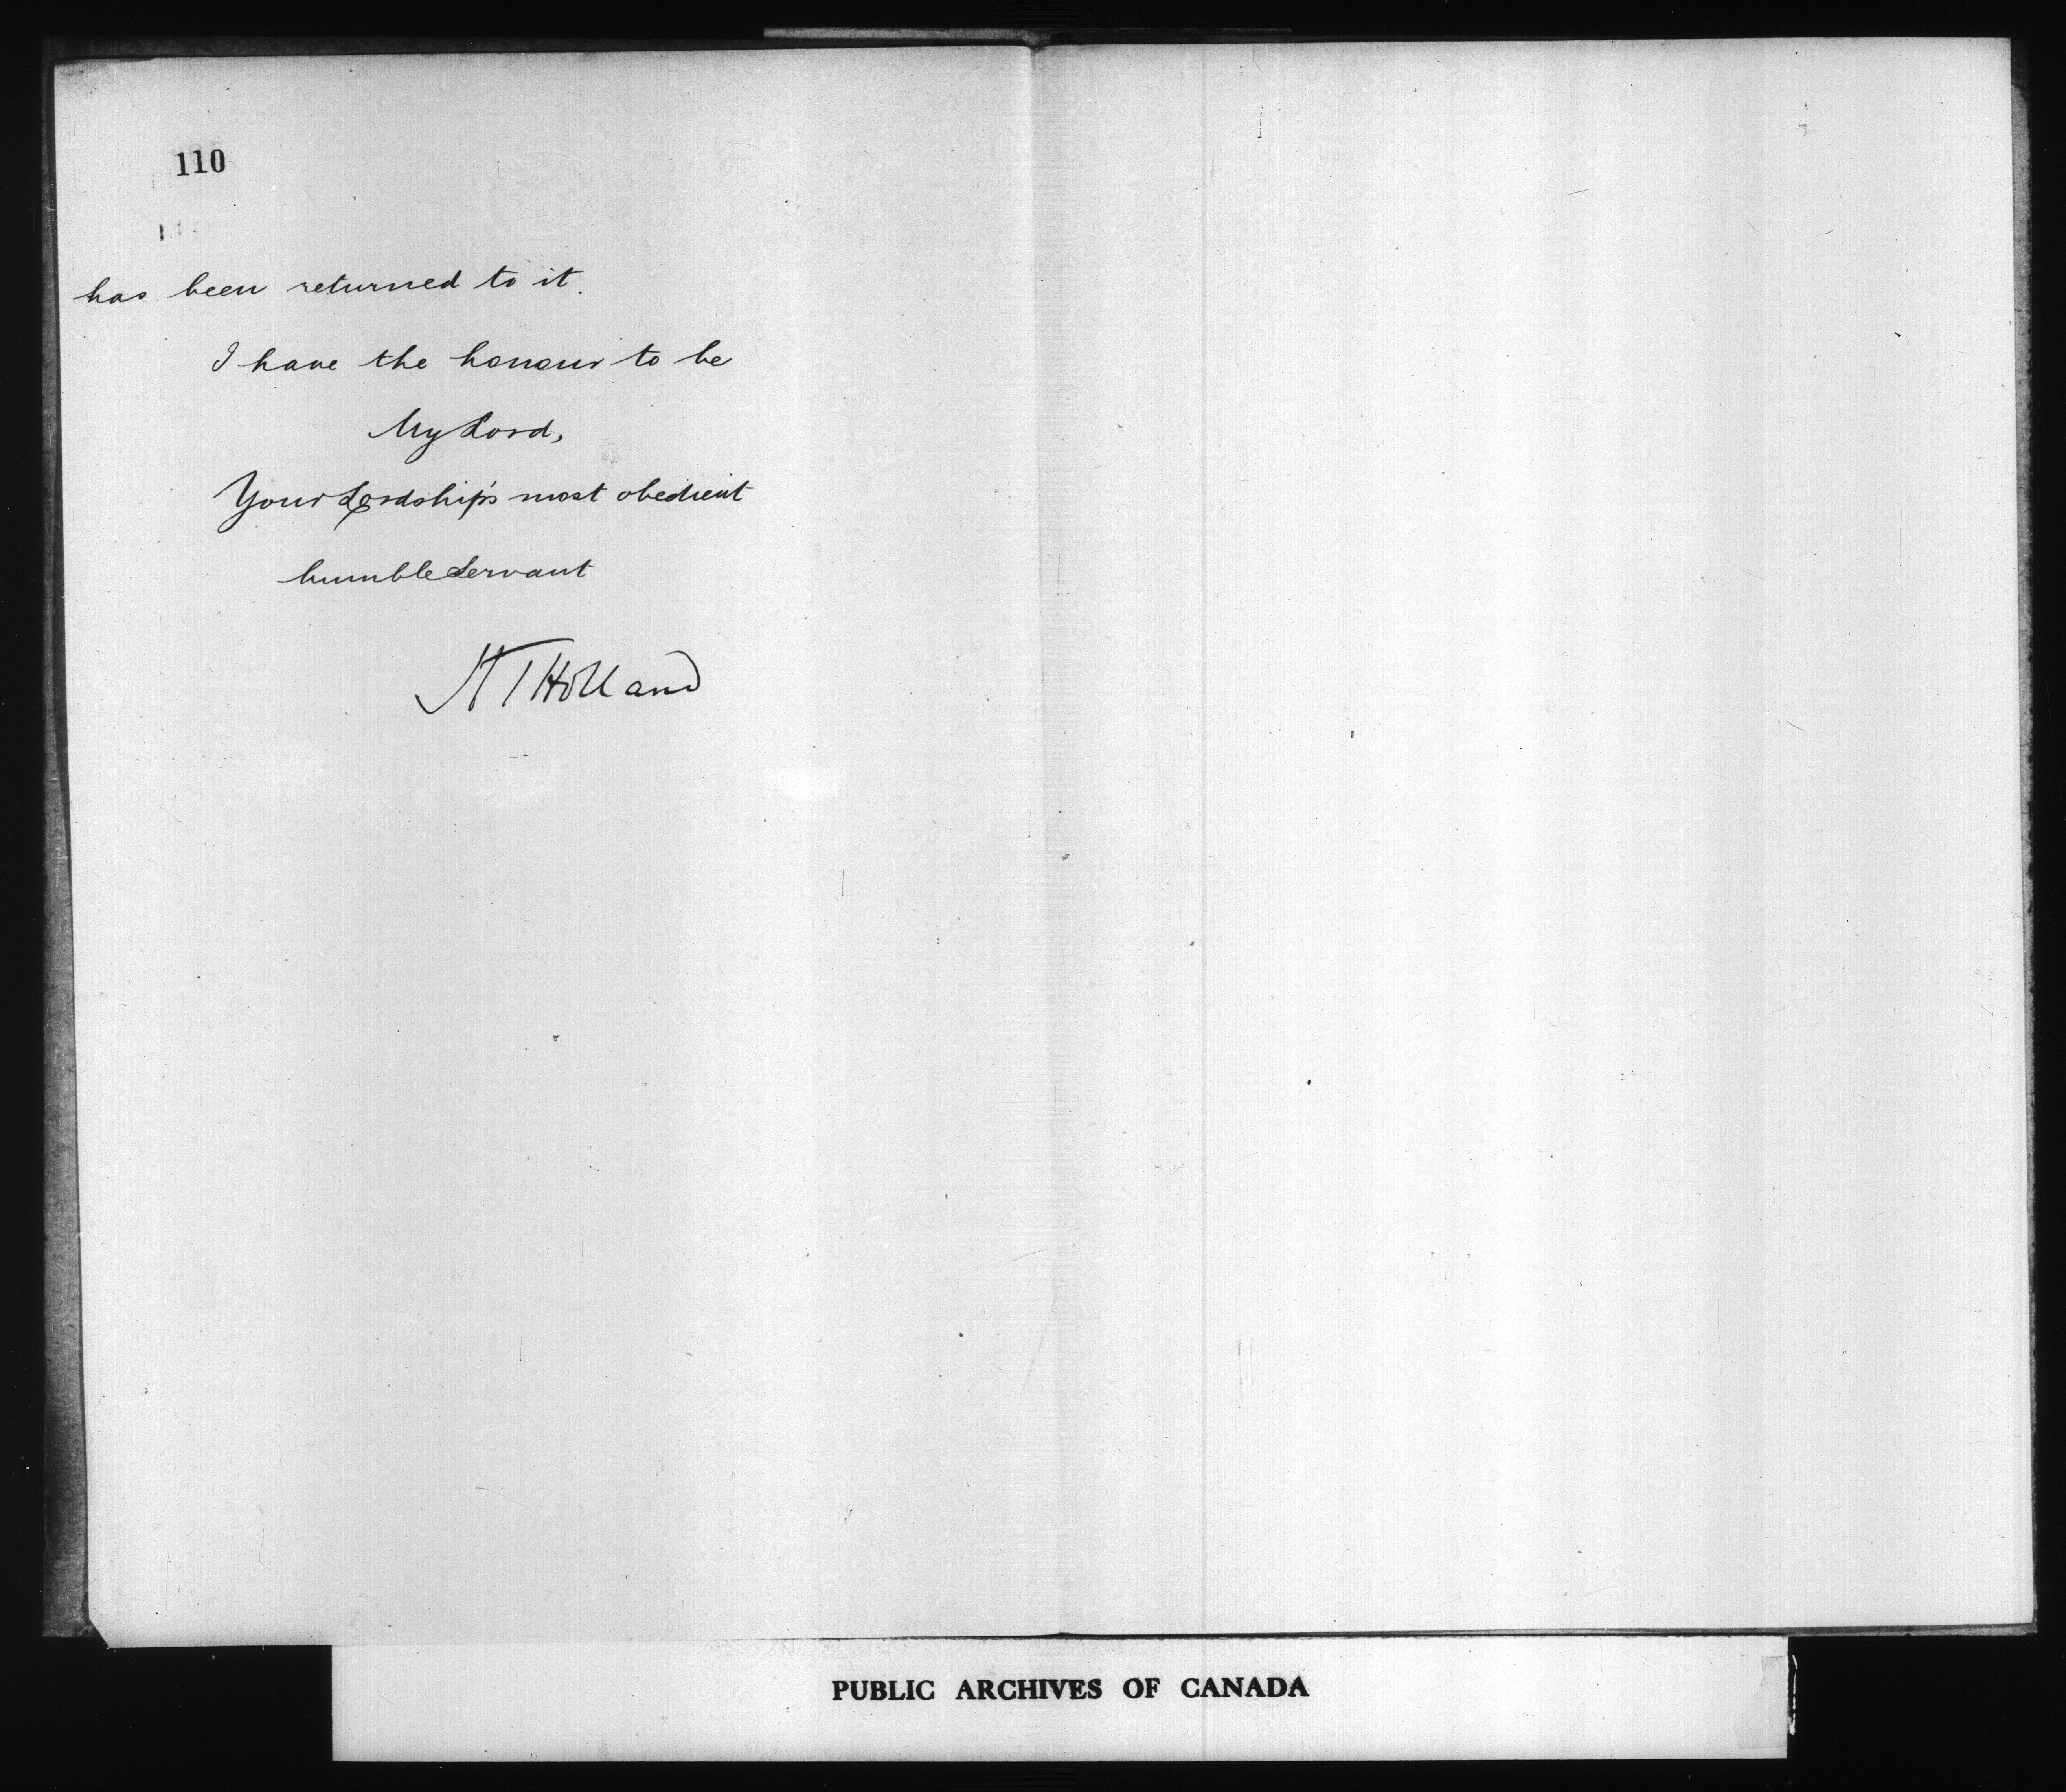 110
has been returned to it.
I have the honour to be
My Lord,
Your Lordship's most obedient
humble Servant
H T Holland
PUBLIC ARCHIVES OF CANADA